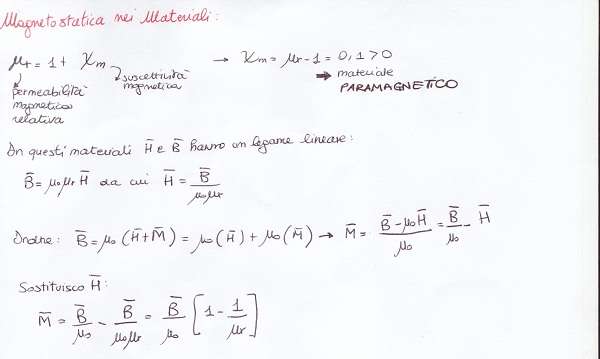 Magnetostatica nei Materiali:
μr = 1 + χm → χm = μr - 1 = 0,1 > 0
permeabilità magnetica relativa
suscettività magnetica
⇒ materiale PARAMAGNETICO
In questi materiali H̄ e B̄ hanno un legame lineare:
B̄ = μ₀ μr H̄ da cui H̄ = B̄ / μ₀μr
Inoltre: B̄ = μ₀ (H̄ + M̄) = μ₀ (H̄) + μ₀ (M̄) → M̄ = (B̄ - μ₀H̄) / μ₀ = B̄ / μ₀ - H̄
Sostituisco H̄:
M̄ = B̄ / μ₀ - B̄ / μ₀μr = B̄ / μ₀ [1 - 1 / μr]